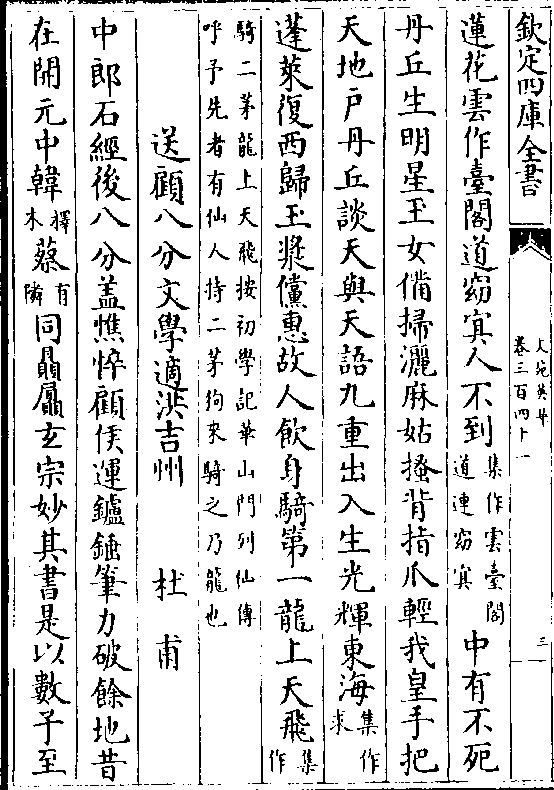 欽定四庫全書
文苑英華
卷三百四十一
三
蓮花雲作臺閣道窈㝠人不到集作雲臺閣道連窈㝠中有不死
丹丘生明星玉女備掃灑麻姑搔背指爪輕我皇手把
天地户丹丘談天與天語九重出入生光輝東海集作求
蓬萊復西歸玉漿儻惠故人飲身騎第一龍上天飛集作
騎二茅龍上天飛按初學記華山門列仙傳
呼子先者有仙人持二茅狗來騎之乃龍也
送顧八分文學適洪吉州
杜甫
中郎石經後八分蓋憔悴顧侯運鑪錘筆力破餘地昔
在開元中韓擇木蔡有隣同贔屭玄宗妙其書是以數子至